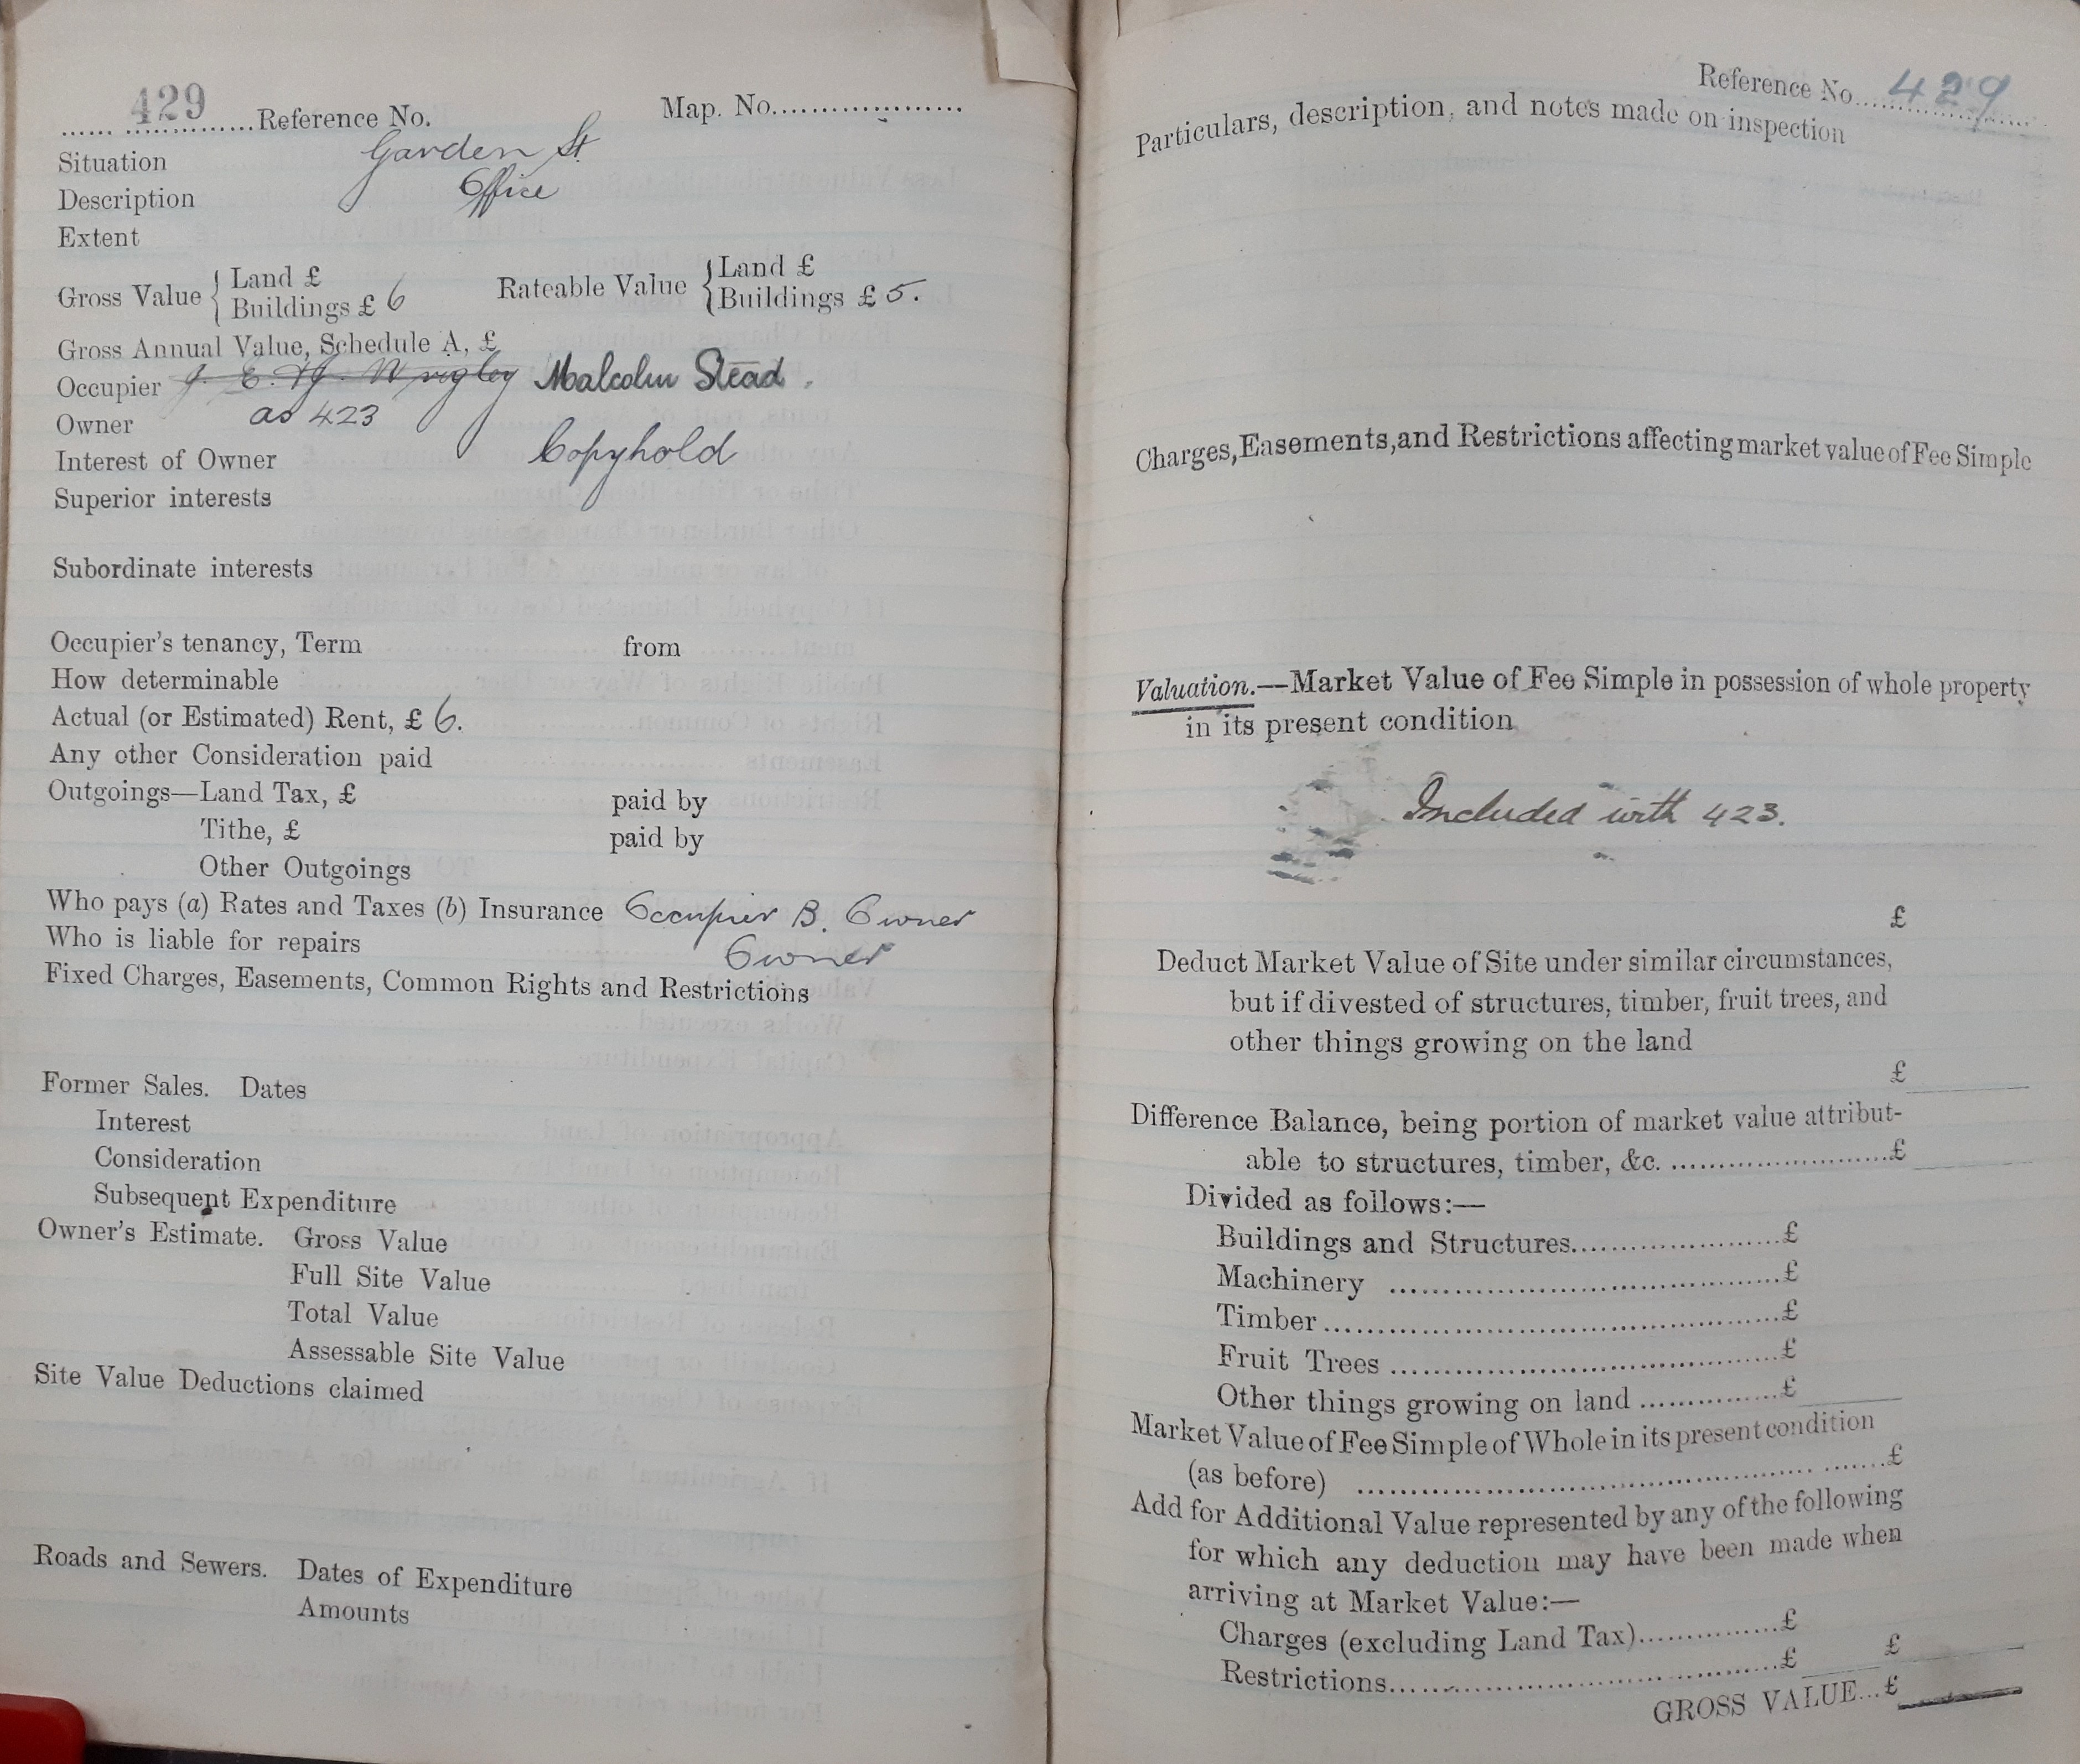 429
Reference No.
Map. No.
Situation Garden St.
Description Office
Extent
Gross Value { Land £
Buildings £ 6
Rateable Value { Land £
Buildings £ 5.
Gross Annual Value, Schedule A, £
Occupier J. E. & J. Wrigley Malcolm Stead.
Owner as 423
Interest of Owner Copyhold
Superior interests
Subordinate interests
Occupier's tenancy, Term from
How determinable
Actual (or Estimated) Rent, £ 6.
Any other Consideration paid
Outgoings—Land Tax, £ paid by
Tithe, £ paid by
Other Outgoings
Who pays (a) Rates and Taxes (b) Insurance Occupier B. Owner
Who is liable for repairs Owner
Fixed Charges, Easements, Common Rights and Restrictions
Former Sales. Dates
Interest
Consideration
Subsequent Expenditure
Owner's Estimate. Gross Value
Full Site Value
Total Value
Assessable Site Value
Site Value Deductions claimed
Roads and Sewers. Dates of Expenditure
Amounts
Reference No. 429
Particulars, description, and notes made on inspection
Charges, Easements, and Restrictions affecting market value of Fee Simple
Valuation.—Market Value of Fee Simple in possession of whole property
in its present condition
Included with 423.
£
Deduct Market Value of Site under similar circumstances,
but if divested of structures, timber, fruit trees, and
other things growing on the land
£
Difference Balance, being portion of market value attribut-
able to structures, timber, &c. £
Divided as follows:—
Buildings and Structures £
Machinery £
Timber £
Fruit Trees £
Other things growing on land £
Market Value of Fee Simple of Whole in its present condition
(as before) £
Add for Additional Value represented by any of the following
for which any deduction may have been made when
arriving at Market Value:—
Charges (excluding Land Tax) £
Restrictions £ £
GROSS VALUE...£